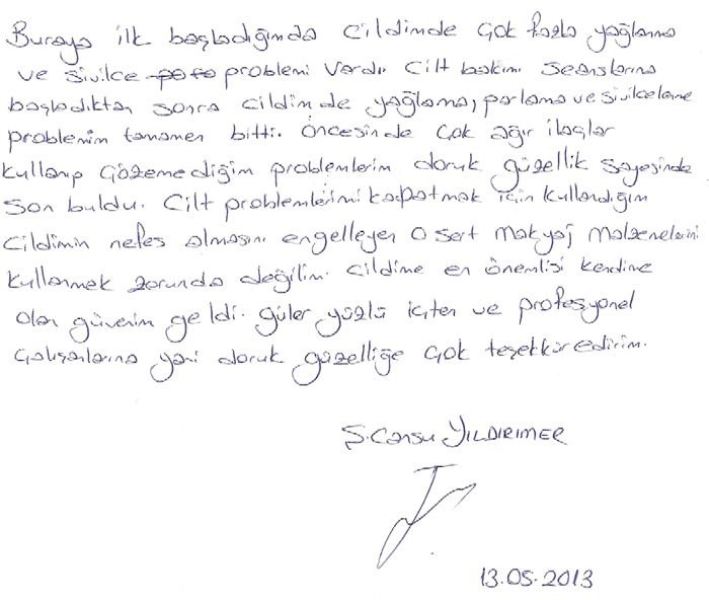 Buraya ilk başladığımda cildimde çok fazla yağlanma
ve sivilce problemi vardı. Cilt bakımı seanslarına
başladıktan sonra cildimde yağlama, parlama ve sivilcelenme
problemim tamamen bitti. Öncesinde çok ağır ilaçlar
kullanıp çözemediğim problemlerim doruk güzellik sayesinde
son buldu. Cilt problemlerimi kapatmak için kullandığım
cildimin nefes almasını engelleyen o sert makyaj malzemelerini
kullanmak zorunda değilim. Cildime en önemlisi kendime
olan güvenim geldi. Güler yüzlü içten ve profesyonel
çalışanlarına yani doruk güzelliğe çok teşekkür ederim.
Ş. Cansu YILDIRIMER
13.05.2013